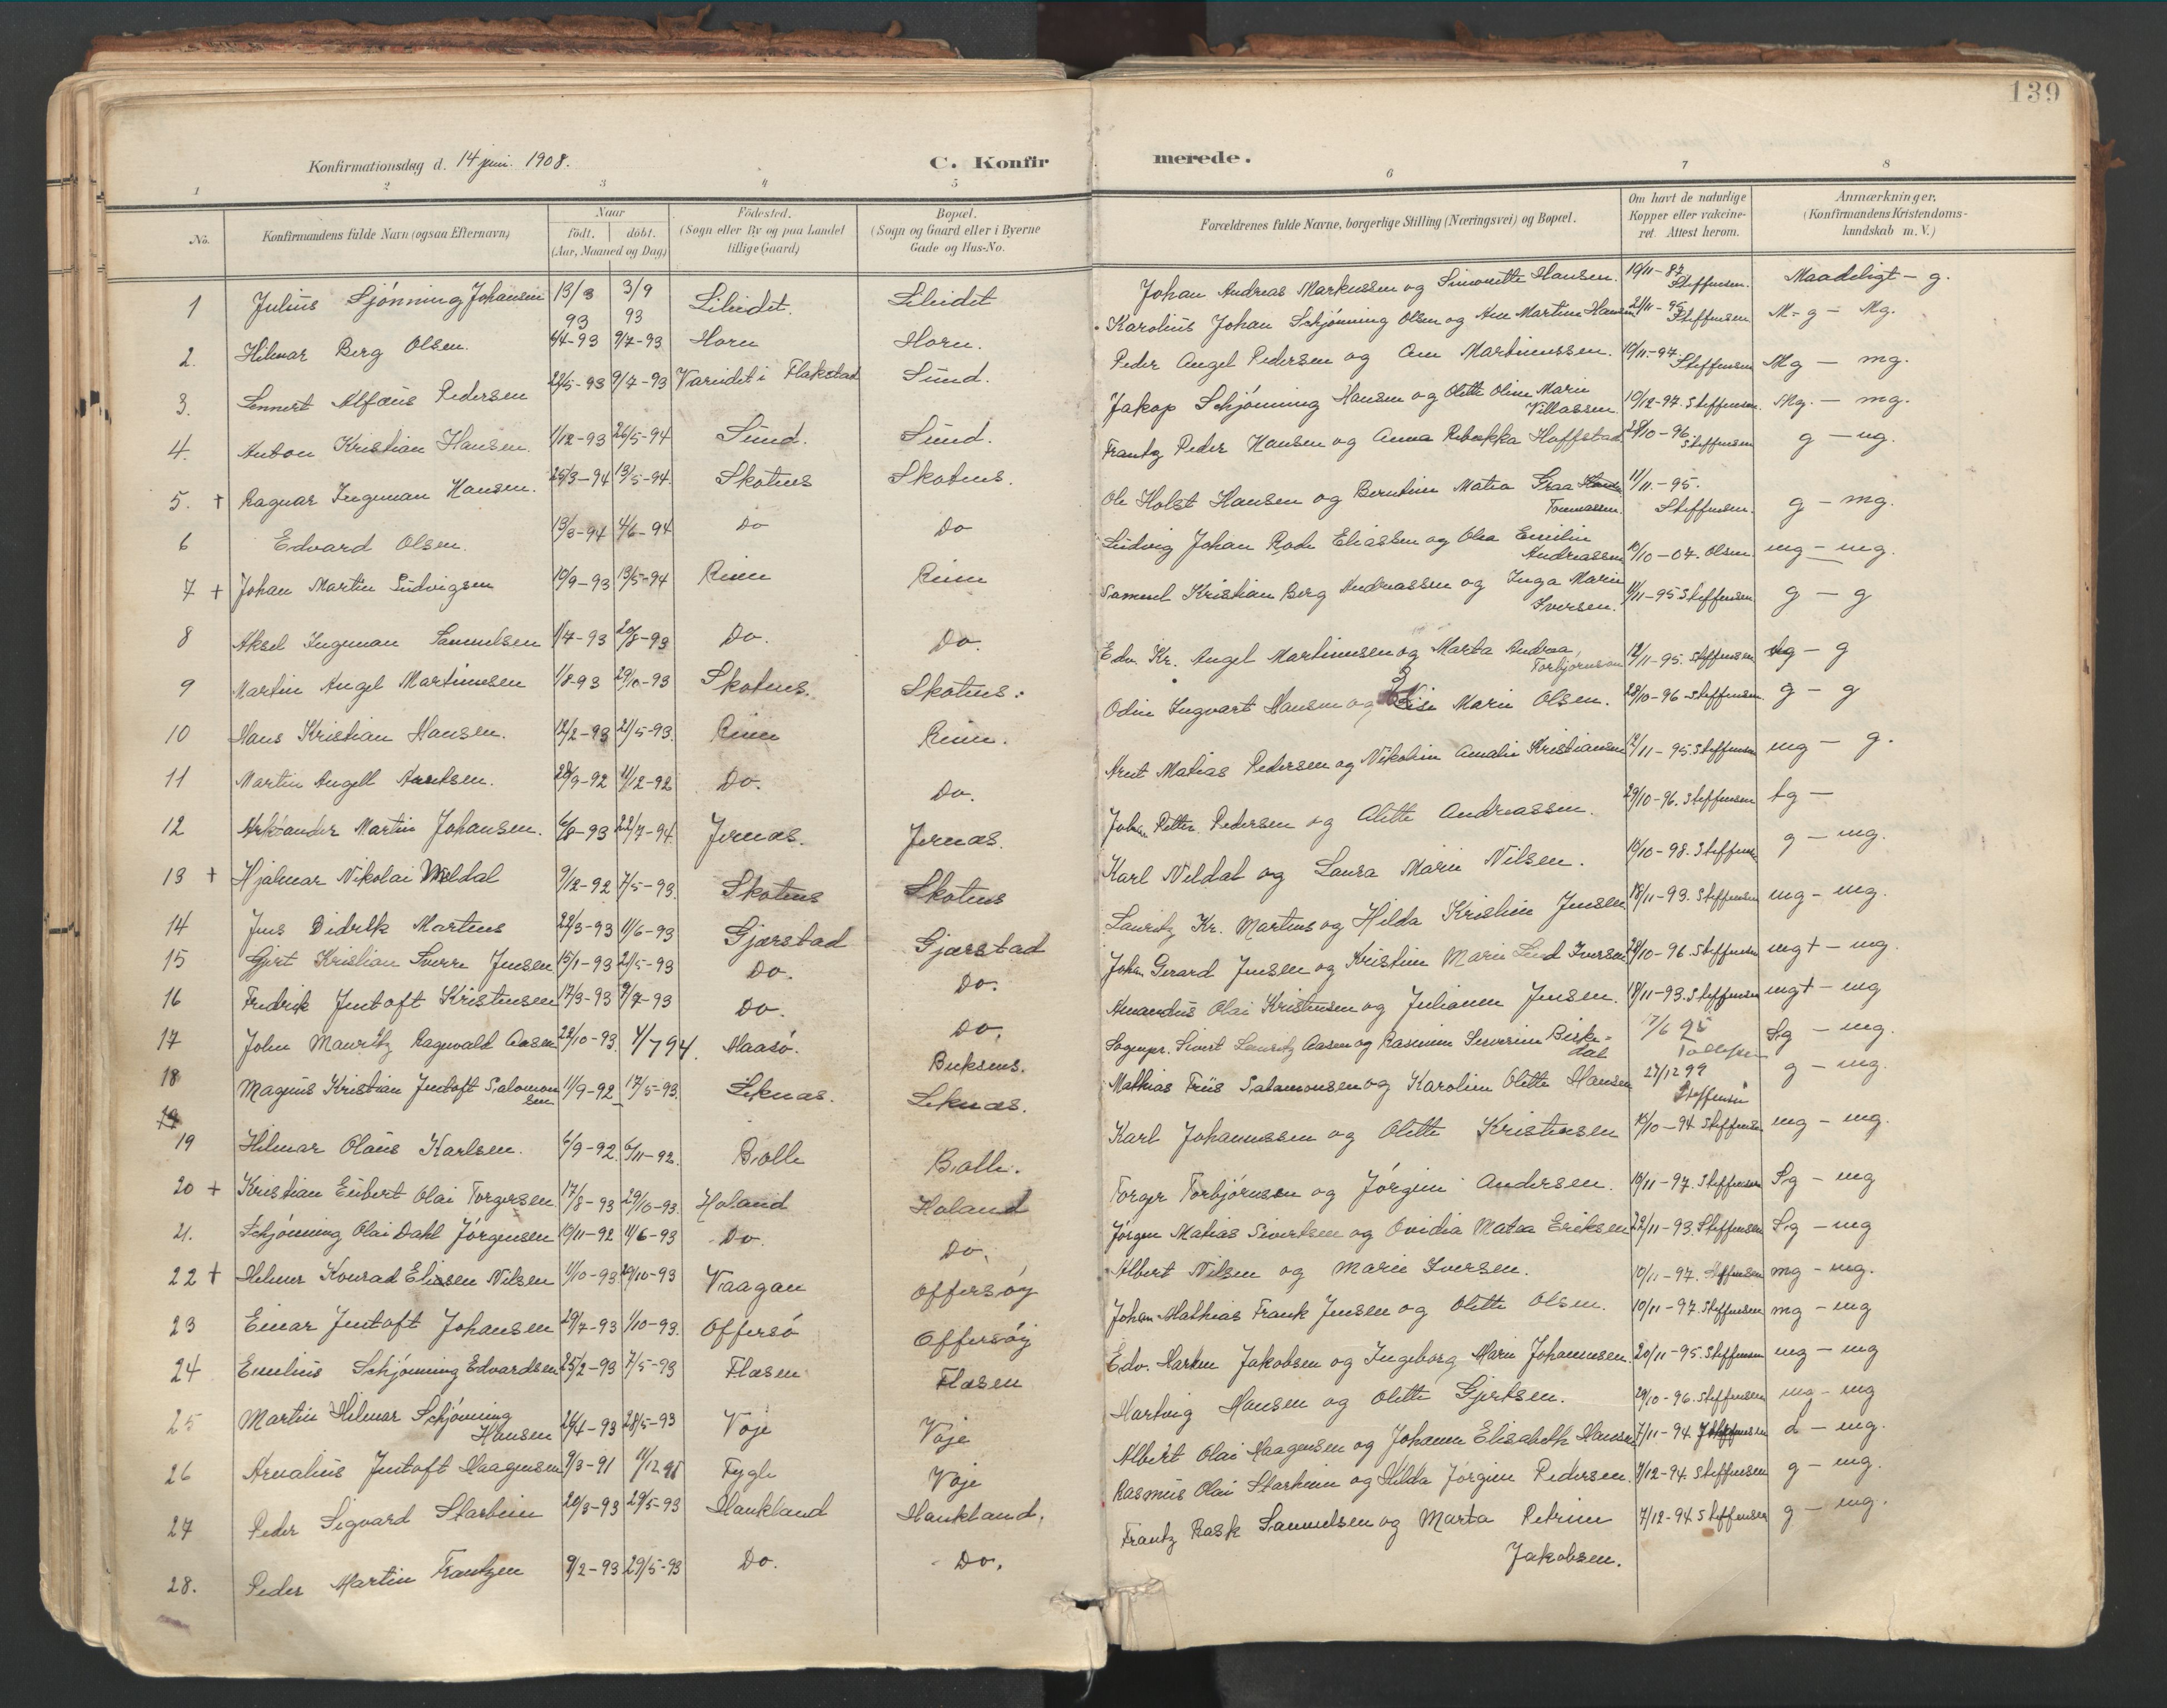 139
Konfirmationsdag d. 14 juni. 1908.
C. Konfirmerede.
1 2 3 4 5 6 7 8
No. Konfirmandens fulde Navn (ogsaa Efternavn) Naar født. døbt. (Aar, Maaned og Dag) Födested. (Sogn eller By og paa Landet tillige Gaard) Bopæl. (Sogn og Gaard eller i Byerne Gade og Hus-No. Forældrenes fulde Navne, borgerlige Stilling (Næringsvei) og Bopæl. Om havt de naturlige Kopper eller vakcineret. Attest herom. Anmærkninger. (Konfirmandens Kristendomskundskab m. V.)
1 Julius Sjönning Johansen 13/3 93 3/9 93 Johan Andreas Markussen og Simonette Hansen. 19/11-87 Steffensen. Maadeligt - g.
2. Hilmar Berg Olsen. 9/7-93 Horn Horn. Karolius Johan Schjönning Olsen og Ane Martine Hansen 21/11-95 Steffensen M-g - Mg.
3. Lennert Alfæus Pedersen 22/5-93 9/7-93 Vareidet i Flakstad Sund. Peder Angel Pedersen og Ane Martinussen. 10/11-97 Steffensen Mg - mg.
4. Anton Kristian Hansen. 1/12-93 26/5-94 Sund. Sund. Jakop Schjönning Hansen og Olette Oline Marie Villassen. 10/12-97. Steffensen. Mg. - mg.
5. + Ragnar Ingeman Hansen. 25/3-94 13/5-94 Skotnes Skotnes. Frantz Peder Hansen og Anna Rebekka Hoffstad 28/10-96. Steffensen g - mg.
6 Edvard Olsen. 13/3-94 4/6-94 Do Do Ole Holst Hansen og Berntine Matea Graa Tommassen. 11/11.-95. Steffensen. g - mg.
7 + Johan Martin Ludvigsen 10/9-93 13/5-94 Rinn Rinn Ludvig Johan Rode Eliassen og Olea Emilie Andreassen 10/10-07. Olsen. mg - mg.
8 Aksel Ingeman Samuelsen 1/7-93 20/8-93 Do. Do. Samuel Kristian Berg Andreassen og Inga Marie Iversen. 11/11-95 Steffensen g - g
9 Martin Angel Martinusen 1/8-93 29/10-93 Skotnes. Skotnes. Edv. Kr. Angel Martinusen og Marta Andrea, Torbjörnson 12/11-95. Steffensen g
10 Hans Kristian Hansen. 12/2-93 21/5-93. Rinn Rinn. Odin Ingvart Hansen og Elise Marie Olsen. 28/10-96 Steffensen. g - g
11 Martin Angell Arntsen. 28/9-92 11/12-92 Do. Do. Arnt Matias Pedersen og Nikoline Amalie Kristiansen 12/11-95. Steffensen mg - g.
12 Martin Johansen. 6/8-93 22/7-94. Jernæs. Jernæs. Johan Petter Pedersen og Olette Andreassen. 29/10-96. Steffensen tg -
13 + Hjalmar Nikolai Meldal 9/12-92 7/5-93. Skotnes Skotnes Karl Neldal og Laura Marie Nilsen. 10/10-98. Steffensen g - mg.
14 Jens Didrik Martens 22/3-93 11/6-93 Gjærstad Gjærstad Lauritz Kr. Martens og Hilda Kristine Jensen 18/11-93. Steffensen mg - mg.
15 Gjert Kristian Sverre Jensen 15/1-93 21/5-93 Do. Do. Johan Gerard Jensen og Kristine Marie Lund Iversen 28/10-96. Steffensen mg+ - mg.
16 Fredrik Jentoft Kristensen 17/3-93 9/7-93 Do. Do. Amandus Olai Kristensen og Julianne Jensen. 18/11-93. Steffensen mg+ - mg
17 John Mauritz Ragnvald Aasen 22/10-93. 4/7 94. Maasö. Buksnes. Sogenpr. Sivert Lauritz Aasen og Rasmine Severine Birkedal 17/6 95 Sg - mg.
18 Magnus Kristian Jentoft Salomonsen 11/9-92 17/5-93. Leknæs. Leknæs. Mathias Friis Salamonsen og Karoline Olette Hansen 27/12 99 Steffensen g - mg.
19 Hilmar Olaus Karlsen. 6/9-92. 6/11-92. Bolle Bolle. Karl Johannessen og Olette Kristensen 10/10-94 Steffensen mg - mg.
20 + Kristian Eribert Olai Torgersen. 17/8-93 29/10-93. Holand Holand Torger Torbjörnsen og Jörgine Andersen. 10/11-97. Steffensen Sg - mg
21. Schjönning Olai Dahl Jörgensen 10/11-92 11/6-93 Do. Do. Jörgen Matias Sivertsen og Ovidia Matea Eriksen 22/11-93. Steffensen Sg - mg
22 + Helmer Konrad Eliseen Nilsen 11/10-93 29/10-93 Vaagan Offersöy Albert Nilsen og Marie Iversen. 10/11-97. Steffensen mg - mg.
23 Einar Jentoft Johansen 29/7-93 1/10-93. Offersö Offersöy Johan Mathias Frank Jensen og Olette Olsen. 10/11-97. Steffensen mg - mg
24 Emelius Schjönning Edvardsen 25/2-93 7/5-93 Flæsen Flæsen Edv. Jakobsen og Ingeborg Marie Johannesen. 20/11-95. Steffensen mg - mg
25 Martin Hilmar Schjönning Hansen 26/4-93 28/5-93 Voje Voje Hartvig Hansen og Olette Gjertsen. 29/10-96. Steffensen mg - mg
26 Arnalius Jentoft Haagensen 9/3-91 Fygle Voje Albert Olai Haagensen og Johanne Elisabeth Hansen 7/11-94 Steffensen d - mg.
27 Peder Sigvard Starheim 20/3-93 29/5-93 Haukland Haukland. Rasmus Olai Starheim og Hilda Jörgine Pedersen. 7/12-94. Steffensen g - mg.
28. Peder Martin Frantzen 9/2-93 29/5-93 Do. Do. Frantz Rask Samuelsen og Marta Petrine Jakobsen. 7/12-94. Steffensen g - mg.